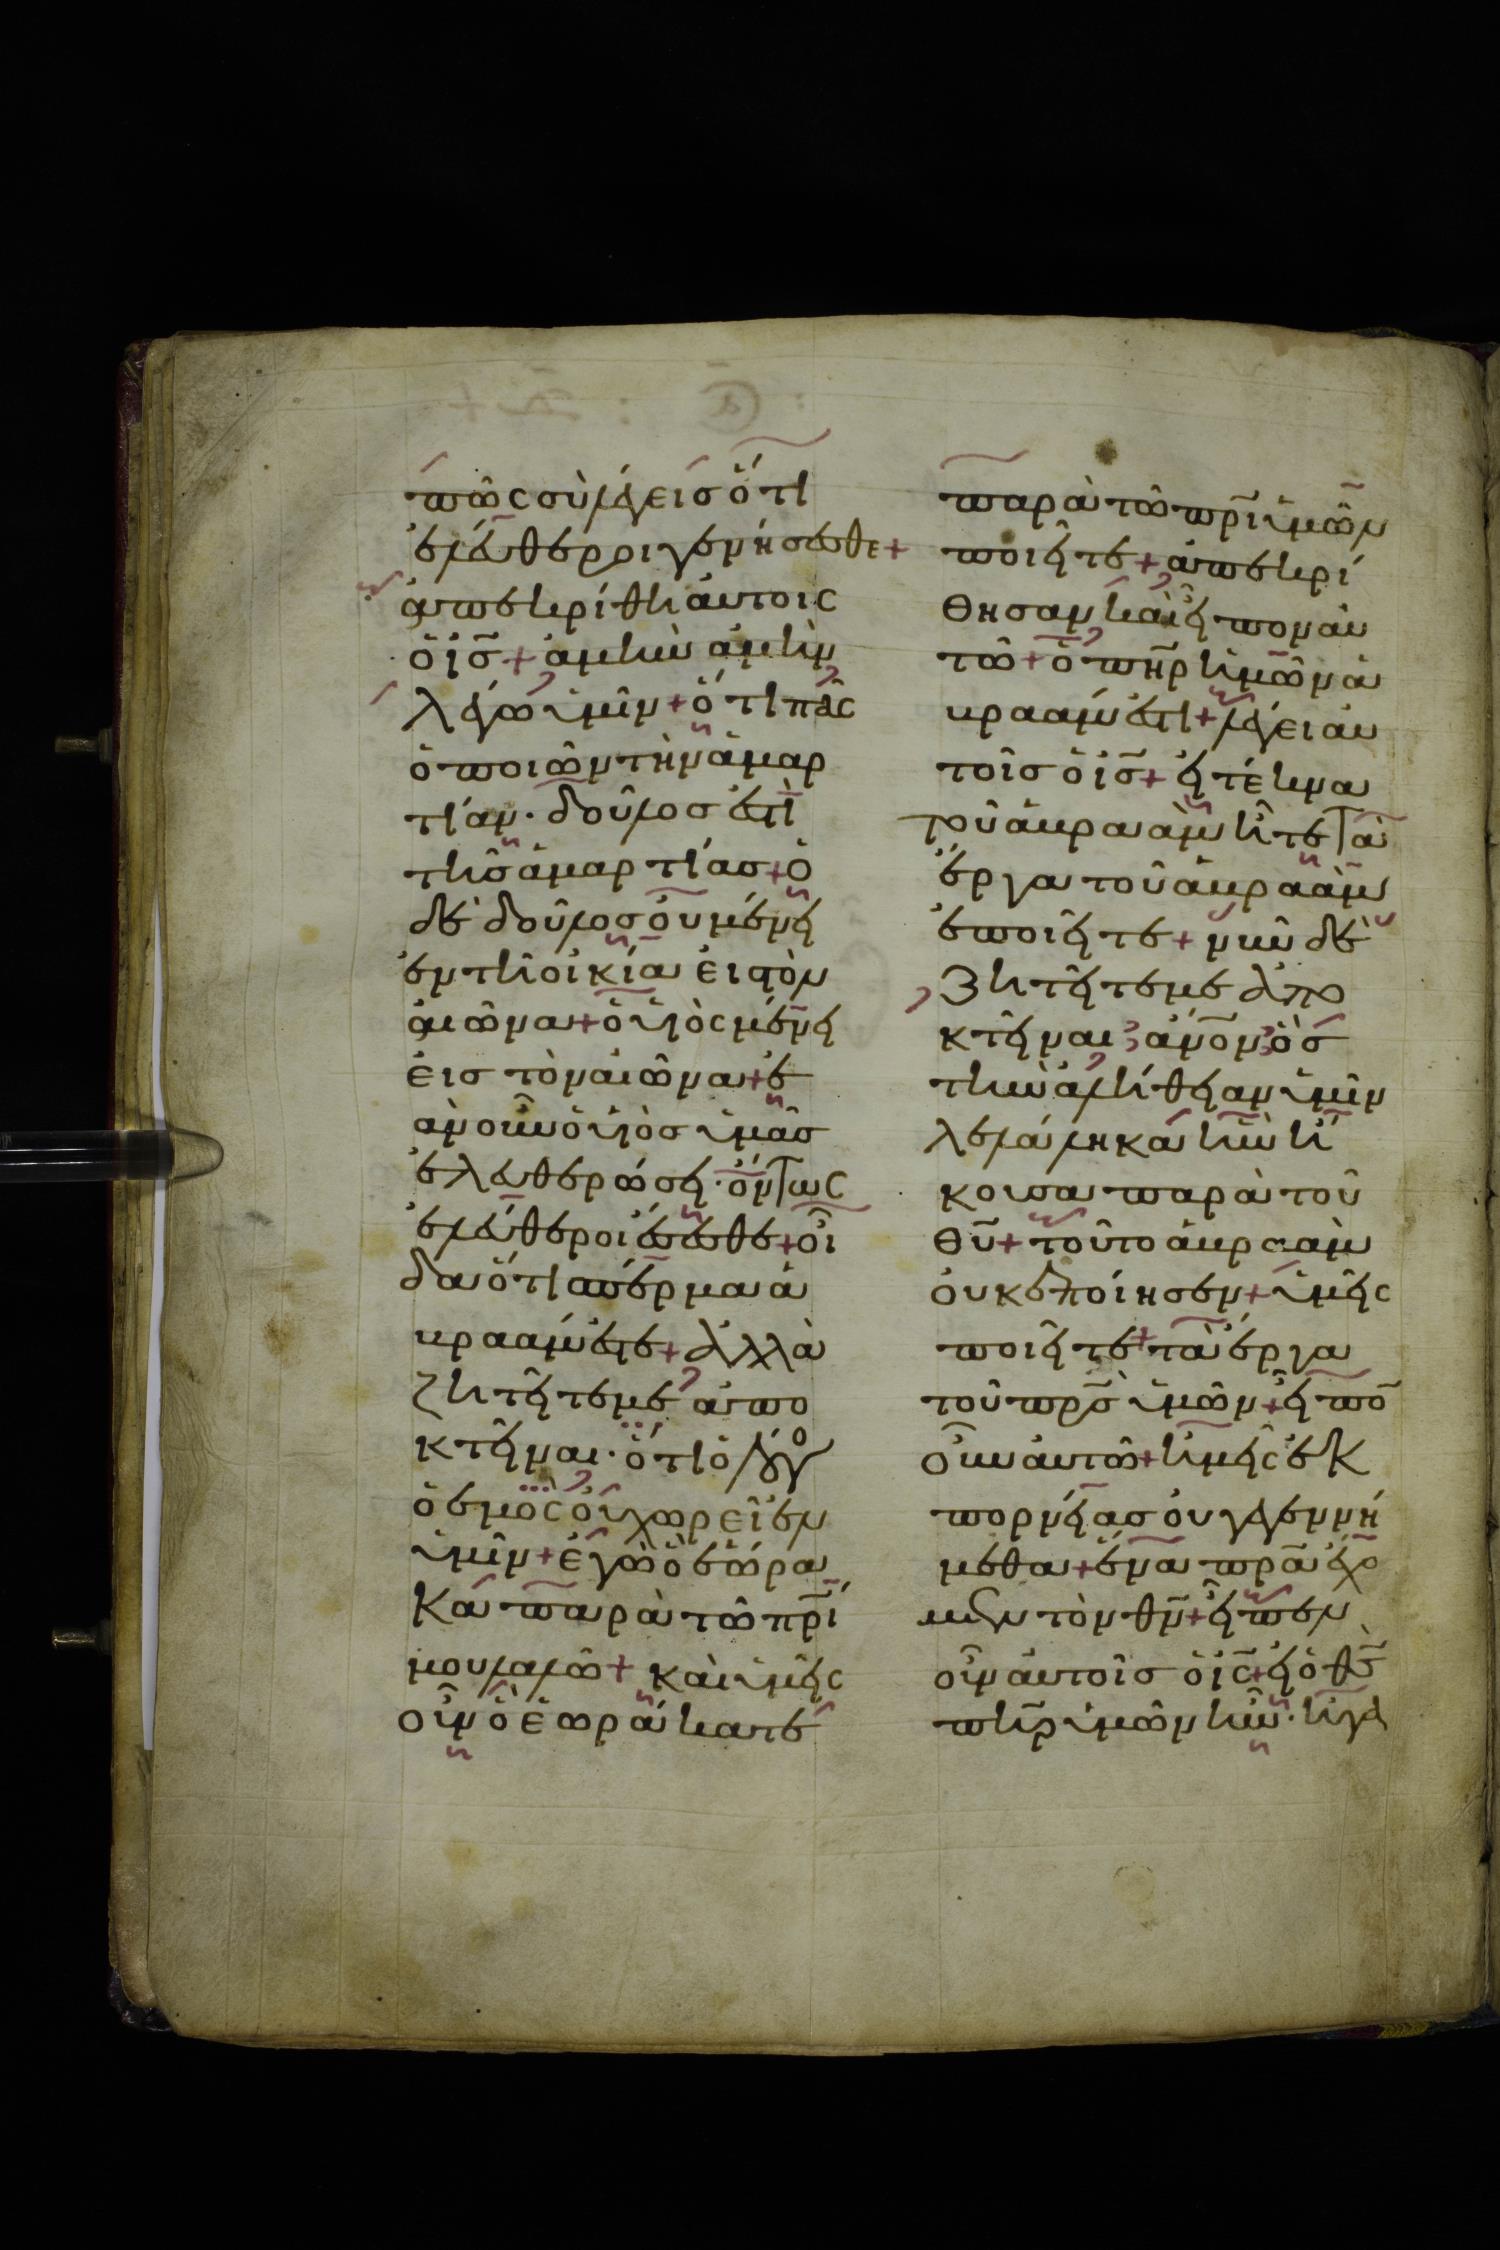 πῶς σὺ λέγεις ὅτι
ἐλεύθεροι γενήσεσθε +
ἀπεκρίθη αὐτοῖς
ὁ ις̅ + ἀμὴν ἀμὴν
λέγω ὑμῖν + ὅτι πᾶς
ὁ ποιῶν τὴν ἁμαρ
τίαν · δοῦλος ἐστὶ
τῆς ἁμαρτίας + ὁ
δὲ δοῦλος οὐ μένει
ἐν τῆ οἰκία εἰς τὸν
αἰῶνα + ὁ υἱὸς μένει
εἰς τὸν αἰῶνα + ἐ
ὰν οὖν ὁ υἱὸς ὑμᾶς
ἐλευθερώσει · ὄντως
ἐλεύθεροι ἔσεσθε + οἶ
δα ὅτι σπέρμα ἀ
βραάμ ἐστε + ἀλλὰ
ζητεῖτέ με ἀπο
κτεῖναι · ὅτι ὁ λόγο
ὁ ἐμὸς οὐ χωρεῖ ἐν
ὑμῖν + ἐγὼ ὃ ἑώρα
κα παρὰ τῶ πρ̅ί
μου λαλῶ + καὶ ὑμεῖς
οὖν ὃ ἑωράκατε
παρὰ τῶ πρ̅ι ὑμῶν
ποιεῖτε + ἀπεκρί
θησαν καὶ εἶπον αὐ
τῶ + ὁ πη̅ρ ἡμῶν ἀ
βραάμ ἐστι + λέγει αὐ
τοῖς ὁ ις̅ + εἰ τέκνα
τοῦ ἀβραὰμ ἦτε τὰ
ἔργα τοῦ ἀβραὰμ
ἐποιεῖτε + νῦν δὲ
ζητεῖτέ με ἀπο
κτεῖναι ἀνον̅ ὃς
τὴν ἀλήθειαν ὑμῖν
λελάληκα ἣν ἤ
κουσα παρὰ τοῦ
θυ̅ + τοῦτο ἀβραὰμ
οὐκ ἐποίησεν + ὑμεῖς
ποιεῖτε + τὰ ἔργα
τοῦ πρς̅ ὑμῶν + εἶπο̅
οὖν αὐτῶ + ἡμεῖς ἐκ
πορνείας οὐ γεγεννή
μεθα + ἕνα πρ̅α ἔχο
μεν τὸν θν̅ + εἶπεν
οὖν αὐτοῖς ὁ ις̅ + εἰ ὁ θς̅
πη̅ρ ὑμῶν ἦν · ἠγα